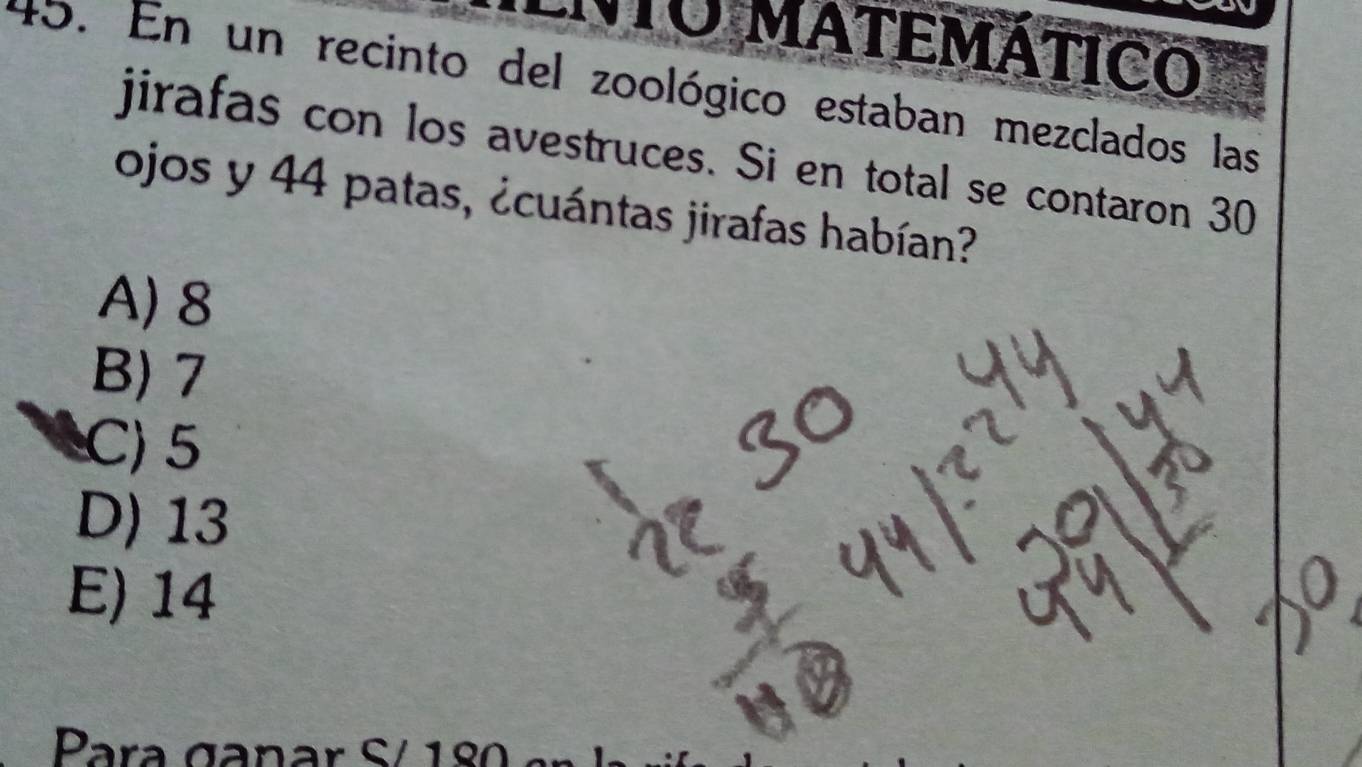 MATEMÁTICO
45. En un recinto del zoológico estaban mezclados las
jirafas con los avestruces. Si en total se contaron 30
ojos y 44 patas, ¿cuántas jirafas habían?
A) 8
B) 7
C) 5
D) 13
E) 14
30
44
44
22
44
30
30
44
30
Para ganar S/ 180